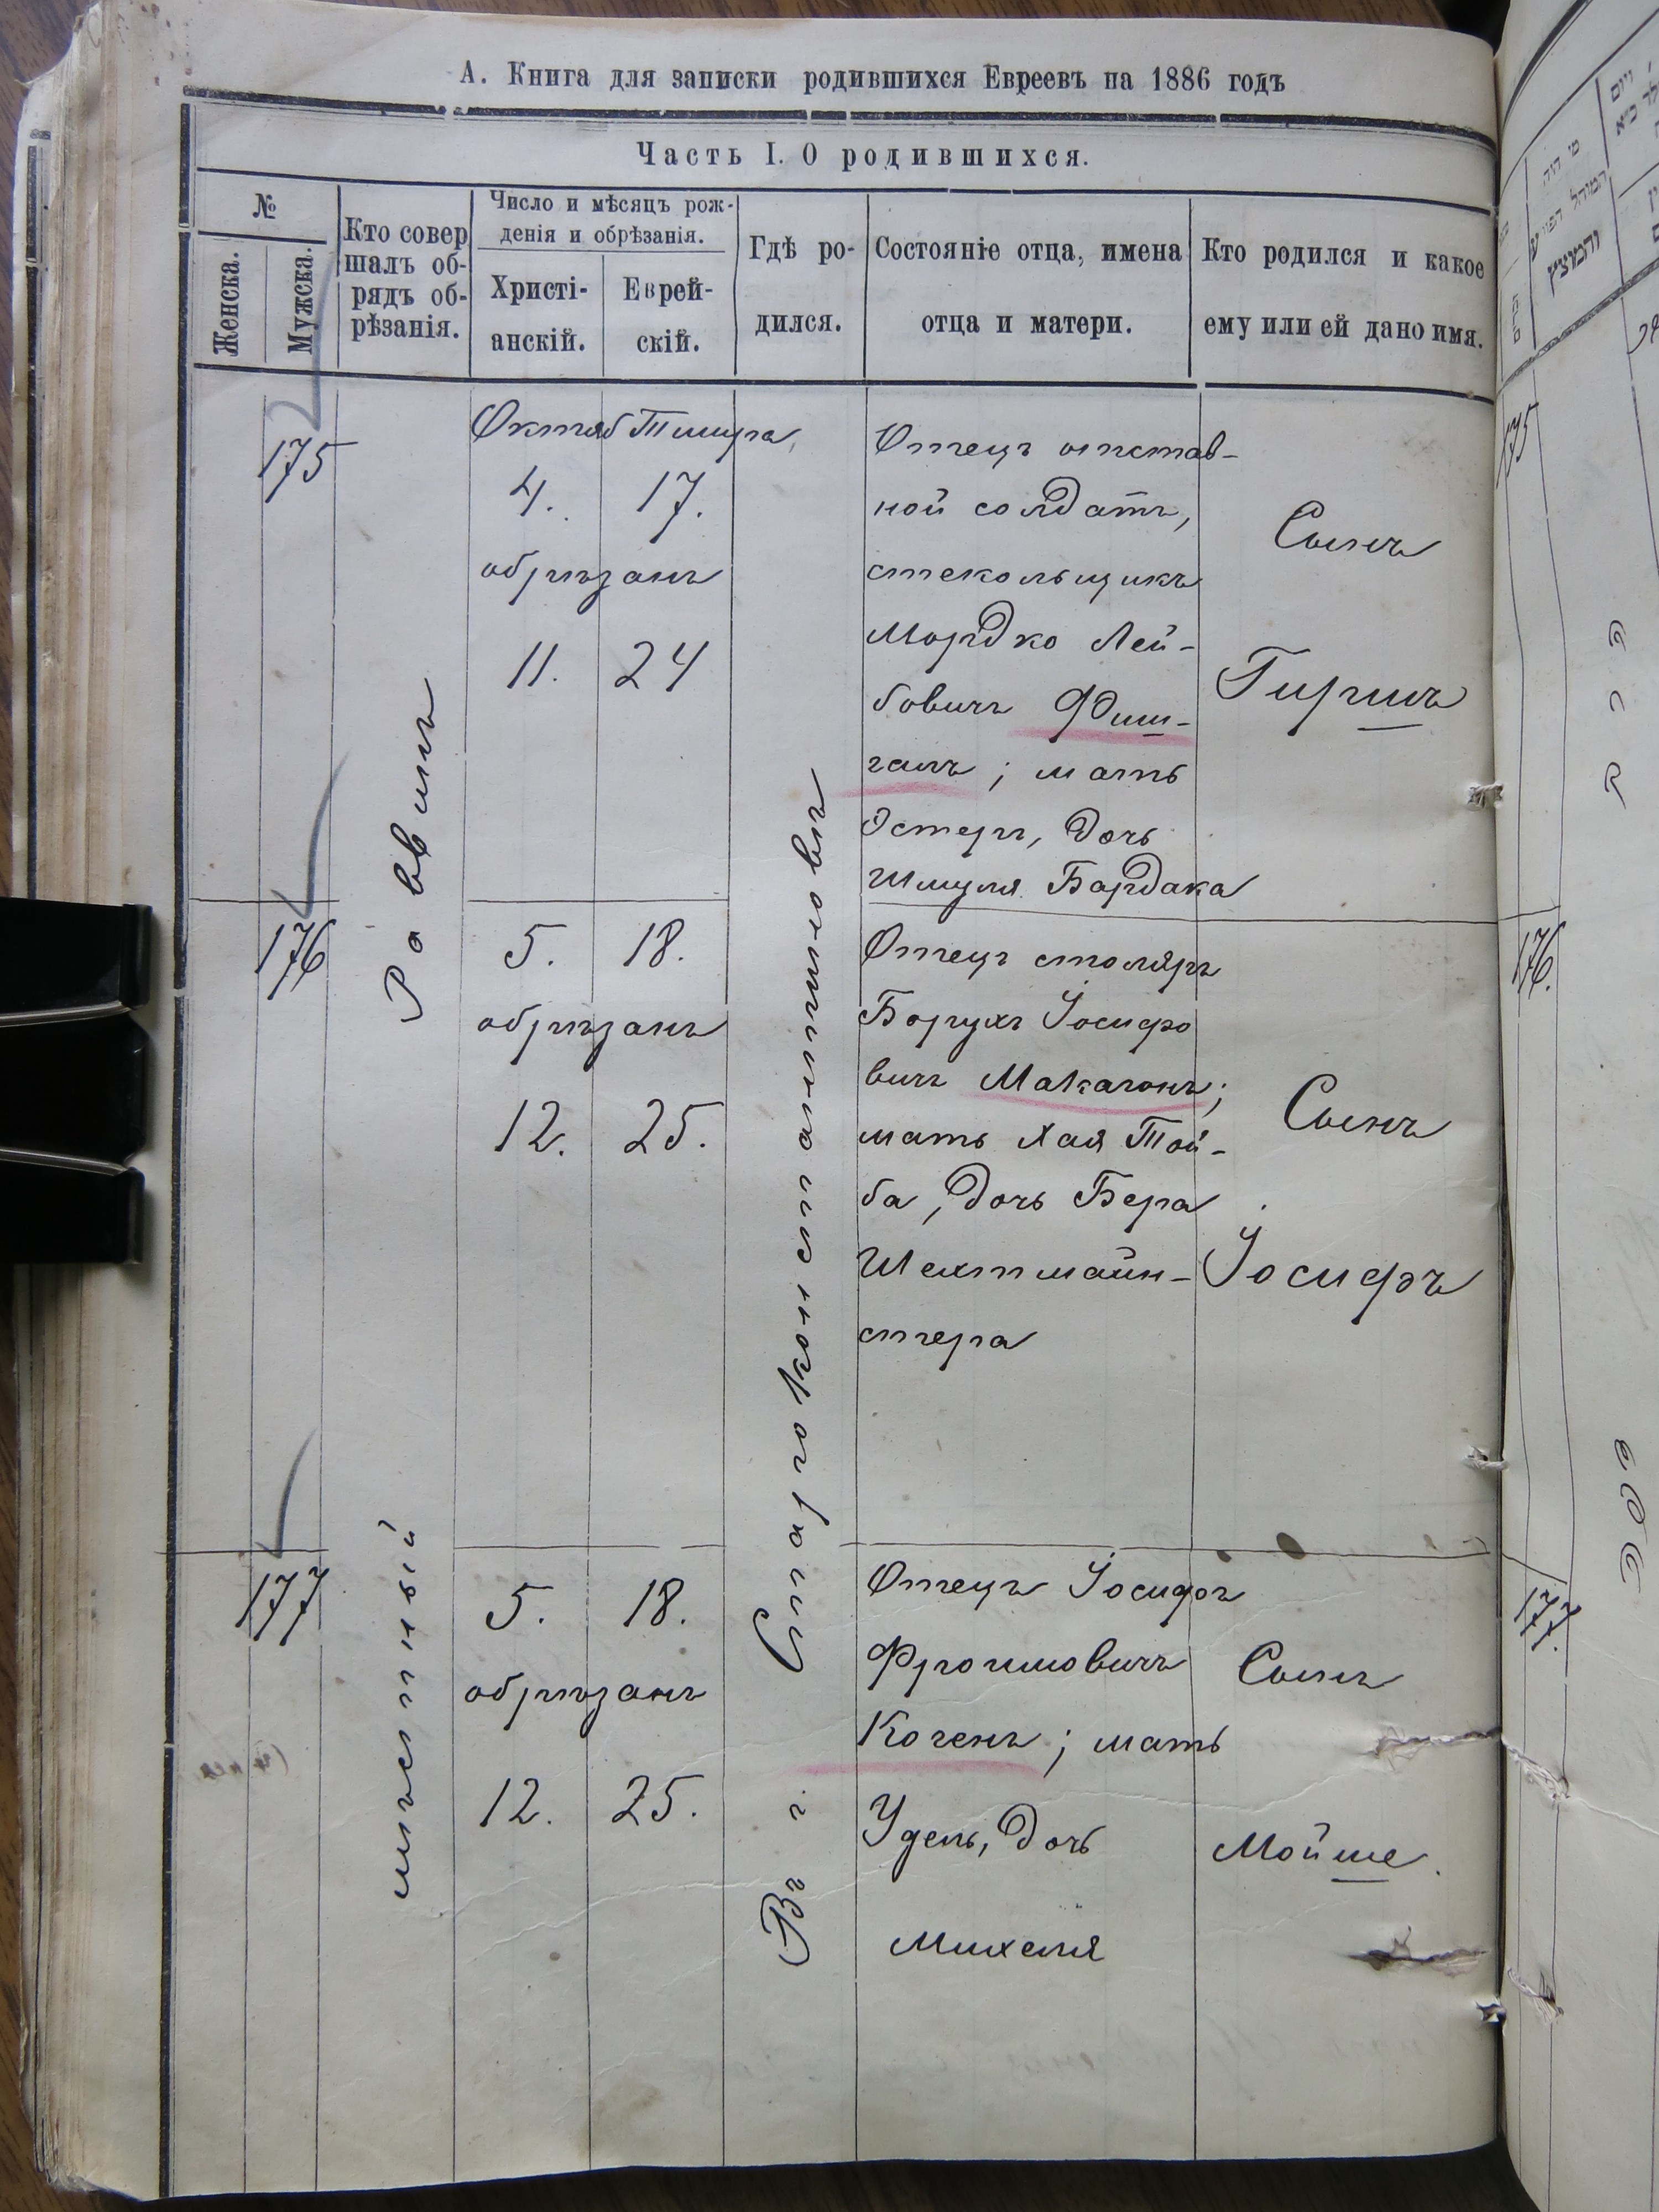 А. Книга для записки родившихся Евреевъ на 1886 годъ
Часть I. О родившихся.
№
Женска.
Мужска.
Кто совер
шалъ об-
рядъ об-
рѣзанія.
Число и мѣсяцъ рож-
денія и обрѣзанія.
Христі-
анскій.
Еврей-
скій.
Гдѣ ро-
дился.
Состояніе отца, имена
отца и матери.
Кто родился и какое
ему или ей дано имя.
мѣстный Раввинъ
Въ г. Староконстантиновѣ
175
Октяб Тишра
4. 17.
обрѣзанъ
11. 24
Отецъ отстав-
ной солдатъ,
стекольщикъ
Мордко Лей-
бовичъ Фиш-
ганъ; мать
Эстеръ, дочь
Шмуля Бардака
Сынъ
Гиршъ
176
5. 18.
обрѣзанъ
12. 25.
Отецъ столяръ
Борухъ Іосифо
вичъ Макагонъ;
мать Хая Той-
ба, дочь Бера
Шехтмайн-
стера
Сынъ
Іосифъ
177
5. 18.
обрѣзанъ
12. 25.
Отецъ Іосифъ
Фроимовичъ
Коченъ; мать
Удель, дочь
Михеля
Сынъ
Мойше.
175
176.
177.